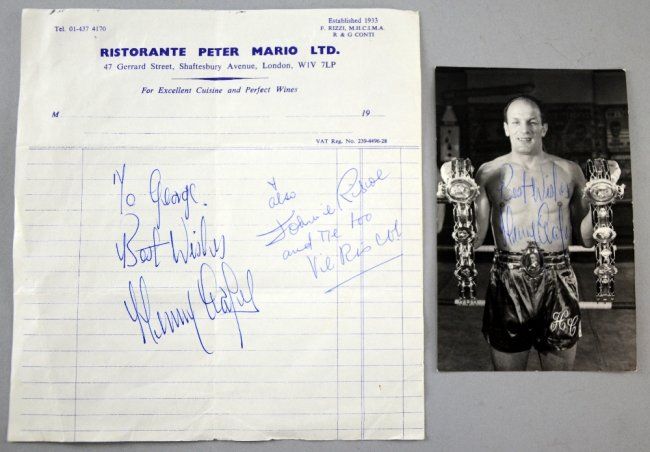 Tel. 01-437 4170
Established 1933
F. RIZZI, M.H.C.I.M.A.
R & G CONTI
RISTORANTE PETER MARIO LTD.
47 Gerrard Street, Shaftesbury Avenue, London, W1V 7LP
For Excellent Cuisine and Perfect Wines
M 19
VAT Reg. No. 239-4496-28
To George.
Best Wishes
Henry Cooper
also
and me too
Best Wishes
Henry Cooper
HC